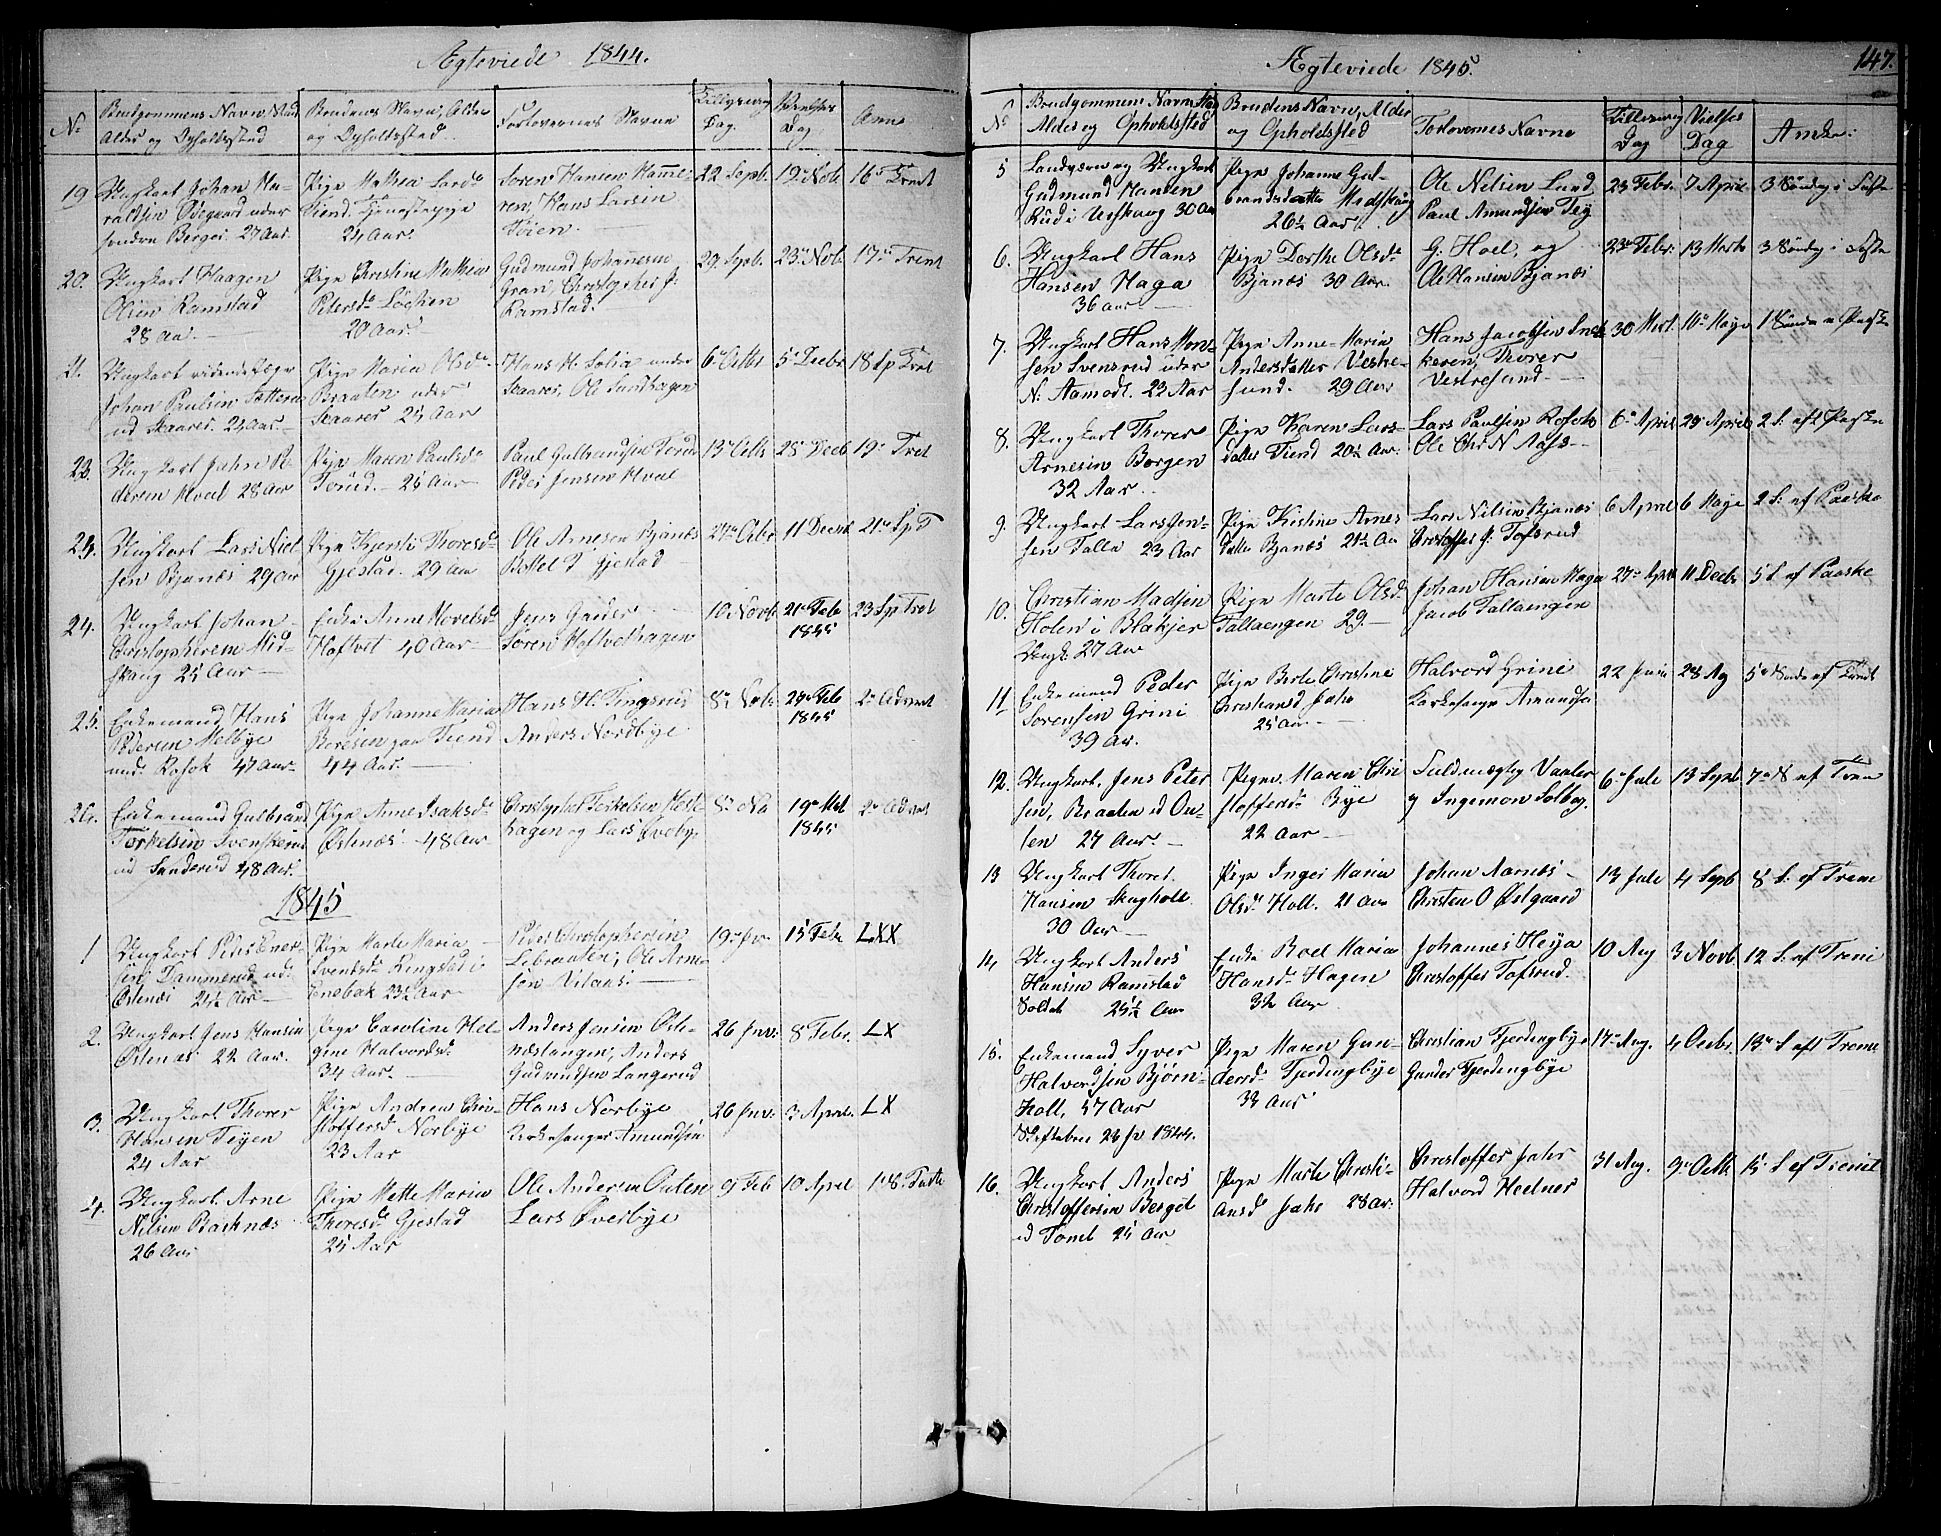 Ægteviede 1844.
No
Brudgommens Navn, Stand
Alder og Opholdssted
Brudens Navn, Alder
og Opholdssted
Forlovernes Navne
Tillysnings
Dag.
Vielses
Dag
Anm
19
Ungkarl Johan Ha-
raldsen Ødegaard under
søndre Berger. 27 Aar.
Pige Mathea Larsd
Tiend. Tjenestepige
24 Aar.
Søren Hansen Hamme-
ren, Hans Larsen
Tøien
22 Septb.
19 Novb.
16 Trnt
20.
Ungkarl Haagen
Olsen Ramstad
28 Aar.
Pige Christine Mathea
Petersd. Løchen
20 Aar.
Gudmund Johannesen
Gran Christopher J.
Ramstad.
29 Spb.
23 Novb.
17 Trnt
21.
Ungkarl
Johan Paulsen
Skaarer. 24 Aar
Pige Maria Olsd
Braaten under
Skaarer 25 Aar
Hans H. Lotia under
Skaarer, Ole Sandhagen
6 Octb
5 Decbr
18 Sp Tret
23.
Ungkarl Johan Pe-
dersen Hval 28 Aar
Pige Maren Paulsd
Torud. 25 Aar
Paul Gulbrandsen Torud
Peder Jensen Hval
13 Octb
28 Decb
19 Tret
24.
Ungkarl Lars Niel-
sen Bjanæs 29 Aar
Pige Kjersti Thoresd
Gjestad. 29 Aar
Ole Arnesen Bjanæs
Bottel T Gjestad
27 Octbr
11 Decmb
21 Sp T
24.
Ungkarl Johan
Christophersen Mid-
skaug 25 Aar
Enke Anne Hovelsd
Hoftvet 40 Aar
Jens Gander
Søren Hoftvethagen
10 Novb
21 Feb
1845
23 Sp Tret
25.
Enkemand Hans
Pedersen Melbye
und. Rosok 47 Aar
Pige Johanne Maria
Boresen paa Tiend
44 Aar.
Hans H. Tingsrud
Anders Nordbye
8 Novb
28 Feb
1845
2 Advent
26.
Enkemand Gulbrand
Torkelsen Svenskerud
ud Sanderud 48 Aar.
Pige Anne Isaksd
Østenæs. 48 Aar
Christopher Torkelsen Hest-
hagen og Lars Øveby.
8 No
19 Mat
1845
2 Advent
1845
1
Ungkarl Peder Ener-
sen Dammerud ud.
Østenæs 24½ Aar
Pige Marte Maria
Svendsd Ringstad i
Enebak 23½ Aar
Peder Christophersen
Lebraaten, Ole Arne-
sen Vilans.
19 Jv.
15 Febr
LXX
2.
Ungkarl Jens Hansen
Østenæs 22 Aar.
Pige Caroline Hel-
gine Halvordsd.
34 Aar.
Anders Jensen Øste-
næstangen, Anders
Gudmundsen Langerud
26 Jnv.
8 Febr.
LX
3.
Ungkarl Thorer
Hansen Teyen
24 Aar
Pige Andrea Chri-
stoffersd Norbye
23 Aar
Hans Norbye
Kirkesanger Amundsen
26 Jnv.
3 April
LX
4.
Ungkarl Arne
Nilsen Baknæs
26 Aar
Pige Mette Maria
Thoresd Gjestad
25 Aar
Ole Andersen Osten
Lars Øverbye
9 Feb
10 April
1 S. Faste
Ægteviede 1845.
147.
No
Brudgommens Navn Stand
Alder og Opholdssted
Brudens Navn, Alder
og Opholdssted
Forlovernes Navne
Tillysning
Dag
Vielses
Dag
Anm:
5
Landværn og Ungkarl
Gudmund Hansen
Rud i Urskoug 30 Aar
Pige Johanne Gul-
brandsdatter Midskoug
26½ Aar.
Ole Nielsen Lund
Paul Amundsen Tey
23 Febr.
7 April
3 Søndag i Faste
6.
Ungkarl Hans
Hansen Haga
36 aar.
Pige Dorthe Olsd
Bjanæs 30 Aar.
G: Hoel, og
Ole Hansen Bjanæs
23 Febr.
13 Marts
3 Søndag i Faste
7.
Ungkarl Hans Mon-
sen Svensrud under
N: Aamodt. 22 Aar
Pige Anne Maria
Andersdatter Vestre-
sund. 29 Aar
Hans Jacobsen Snek-
keren, Thorer
Vestresund
30 Mart.
10 Maye
1 Sønd e Paaske
8.
Ungkarl Thorer
Arnesen Borgen
32 Aar.
Pige Karen Lars-
datter Tiend 20½ Aar.
Lars Paulsen Rosok
Ole Chr N Aas
6 April
29 April
2 S. aft Paaske
9.
Ungkarl Lars Jen-
sen Talla 23 Aar
Pige Kirstine Arnes
datter Bjanæs 21½ Aar
Lars Nilsen Bjanæs
Christoffer J. Tofsrud
6 April
6 Maye
2 S: af Paaske
10.
Christian Madsen
Holen i Blakjer
Ungk. 27 Aar
Pige Marte Olsd
Tallaengen 29.
Johan Hansen Haga
Jacob Tallaengen
27 Apr
11 Decbr
5 S. af Paaske
11
Enkemand Peder
Sørensen Grini
39 Aar.
Pige Berte Christine
Christiansd Jahr
25 Aar
Halvord Grini
Kirkesanger Amundsen
22 Juni
28 Ag
5 Sønd af Trint
12.
Ungkarl. Jens Peter-
sen, Braaten ud Ou-
len 27 Aar.
Pige Maren Chri-
stoffersd Bye
22 Aar
Fuldmægtig Vanter
og Ingemon Solbg.
6 Juli
13 Septb
7 S af Tren
13
Ungkarl Thorer
Hansen Skughole
30 Aar
Pige Inger Maria
Olsd Holl. 21 Aar
Johan Aarnæs
Christen O Østgaard
13 Juli
4 Spb
8 S. af Treni
14
Ungkarl Anders
Hansen Ramstad
Soldat 25½ Aar
Enke Boel Maria
Hansd Hagen
32 Aar
Johannes Heya
Christoffer Tofsrud.
10 Aug
3 Novb
12 S. af Treni
15.
Enkemand Syver
Halvordsen Bjørn-
holt, 57 Aar
Skiftebrev 26 Jv 1844.
Pige Maren Gun-
dersd Fjerdingbye
33 Aar
Christian Fjerdingbye
Gunder Fjerdingbye
17 Aug.
4 Octbr.
13 S. aft Treni
16.
Ungkarl Anders
Christoffersen Berget
ud Tomt 25 Aar
Pige Marte Christi-
ansd Jahr 28 Ar.
Christoffer Jahr
Halvord Hednes
31 Aug.
9 Octb
15 S. af Trenit